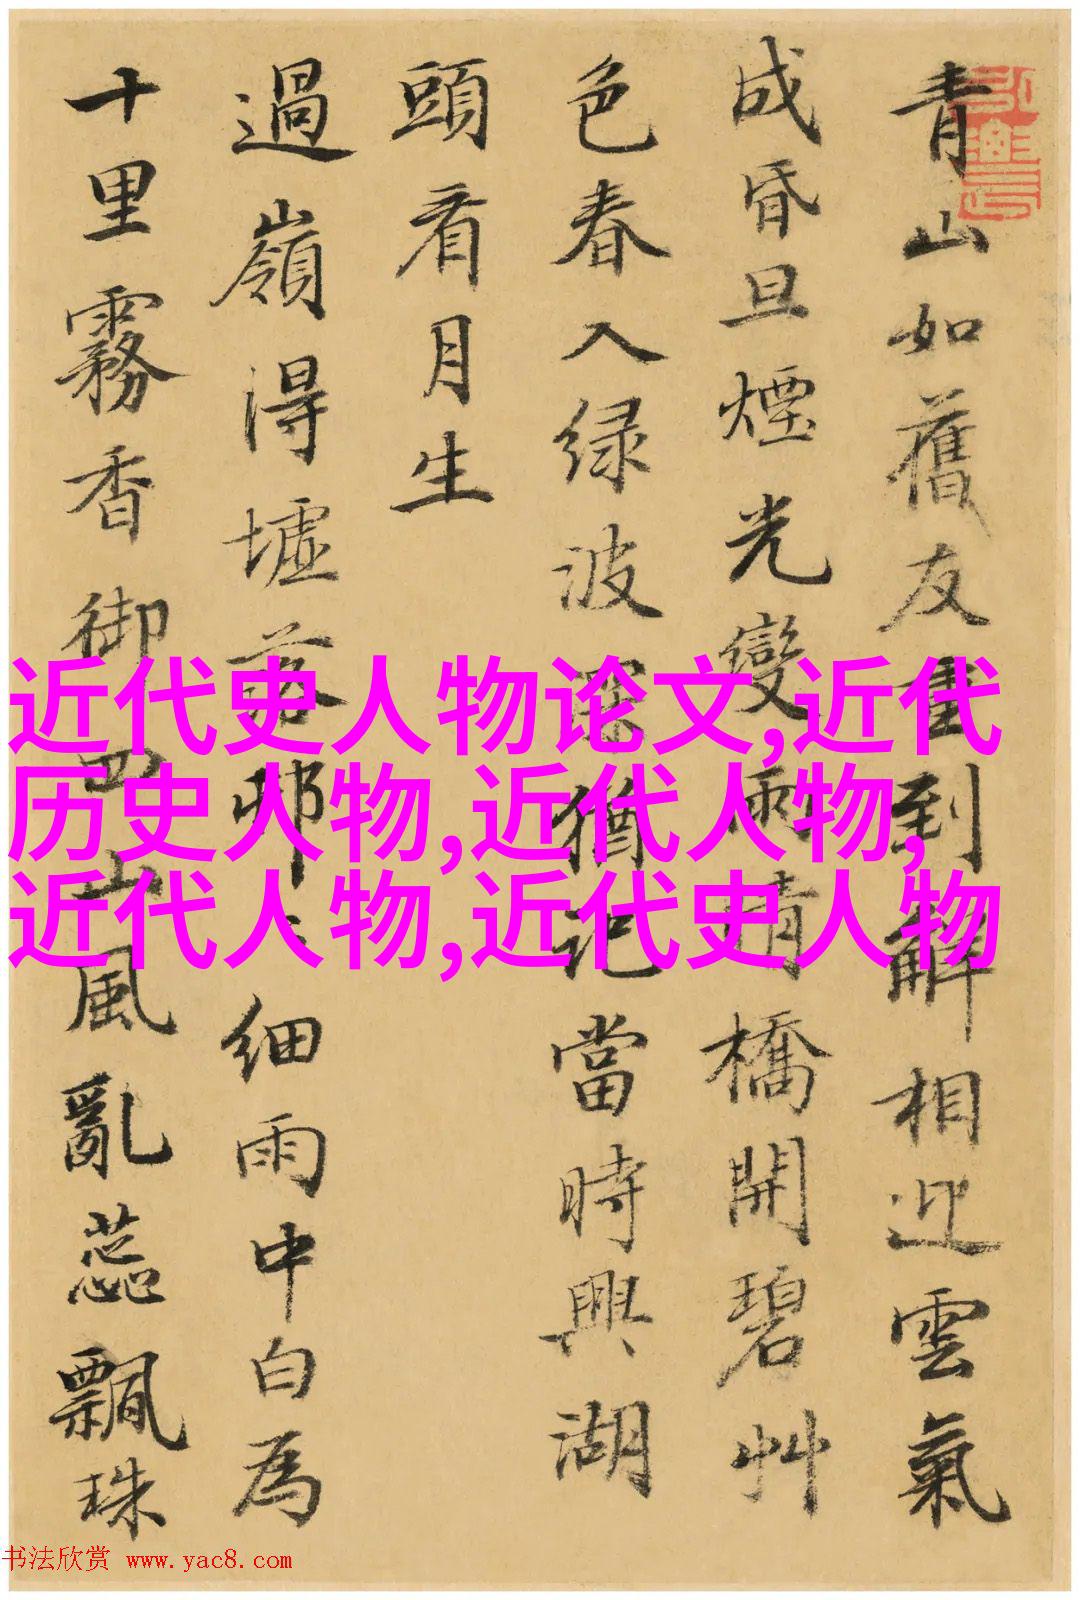 青山如舊友重到解相迎雲氣
成昏旦煙光變雨晴橋開碧艸
色春入绿波猶記當時興湖
頭看月生
過嶺得墟落邨〻細雨中白為
十里霧香御四山風亂蕊飄珠
近代史人物论文,近代
历史人物,近代人物,
近代人物,近代史人物
书法欣赏 www.yac8.com